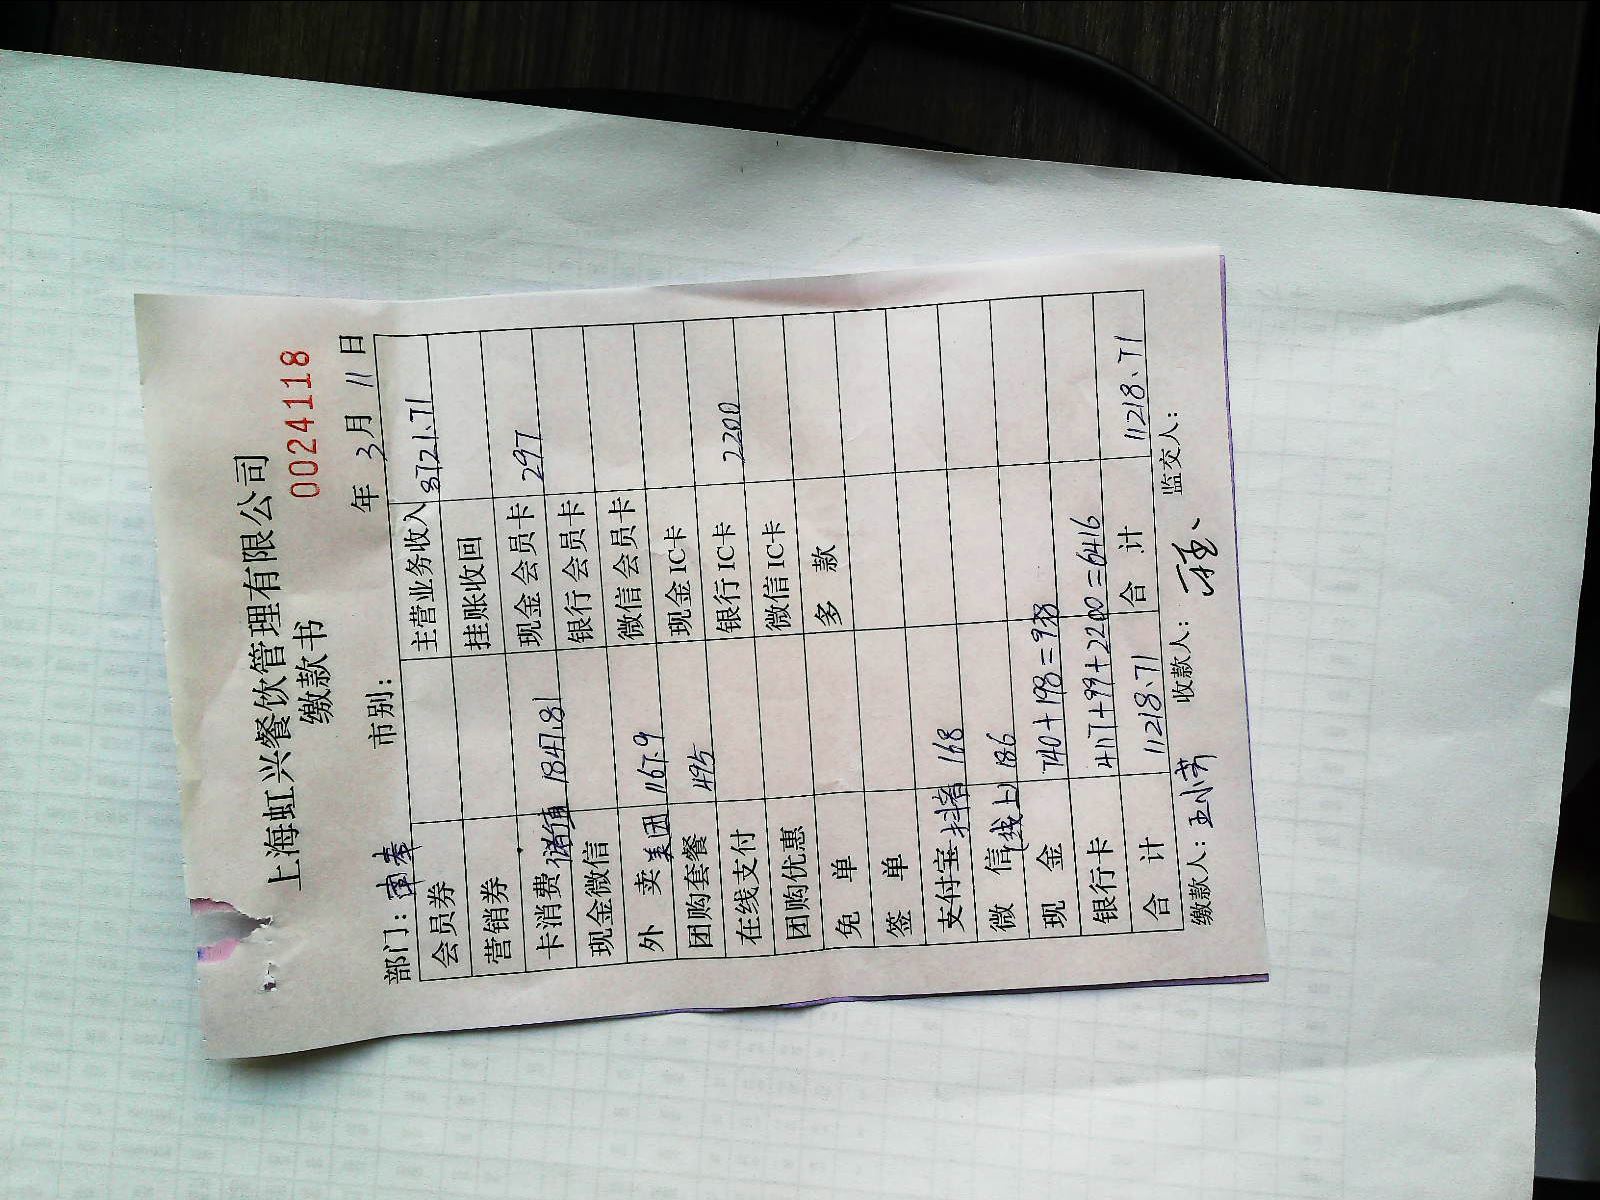 上海虹兴餐饮管理有限公司
缴款书 0024118
部门: 市别: 年 3月 11日
会员券 主营业务收入 8721.71
营销券 挂账收回
卡消费 储值 1847.81 现金会员卡 297
现金微信 银行会员卡
外 卖 美团 1167.9 微信会员卡
团购套餐 495 现金IC卡
在线支付 银行IC卡 2200
团购优惠 微信IC卡
免 单 多 款
签 单
支付宝 抖音 168
微 信(线上) 186
现 金 740+198=938
银行卡 4117+99+2200=6416
合 计 11218.71 合 计 11218.71
缴款人: 王小芳 收款人: 监交人: